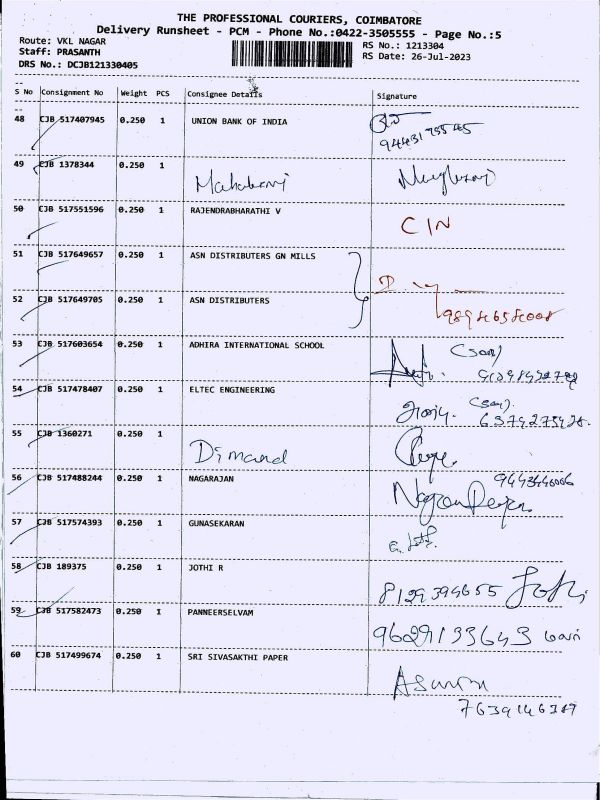 THE PROFESSIONAL COURIERS, COIMBATORE
Delivery Runsheet - PCM - Phone No.:0422-3505555 - Page No.:5
Route: VKL NAGAR
Staff: PRASANTH
DRS No.: DCJB121330405
RS No.: 1213304
RS Date: 26-Jul-2023
S No Consignment No Weight PCS Consignee Details Signature
48 CJB 517407945 0.250 1 UNION BANK OF INDIA
49 CJB 1378344 0.250 1
50 CJB 517551596 0.250 1 RAJENDRABHARATHI V CIN
51 CJB 517649657 0.250 1 ASN DISTRIBUTERS GN MILLS
52 CJB 517649705 0.250 1 ASN DISTRIBUTERS
53 CJB 517603654 0.250 1 ADHIRA INTERNATIONAL SCHOOL
54 CJB 517478407 0.250 1 ELTEC ENGINEERING
55 CJB 1360271 0.250 1 Dimand
56 CJB 517488244 0.250 1 NAGARAJAN
57 CJB 517574393 0.250 1 GUNASEKARAN
58 CJB 189375 0.250 1 JOTHI R 8129394655
59 CJB 517582473 0.250 1 PANNEERSELVAM 9629133643
60 CJB 517499674 0.250 1 SRI SIVASAKTHI PAPER